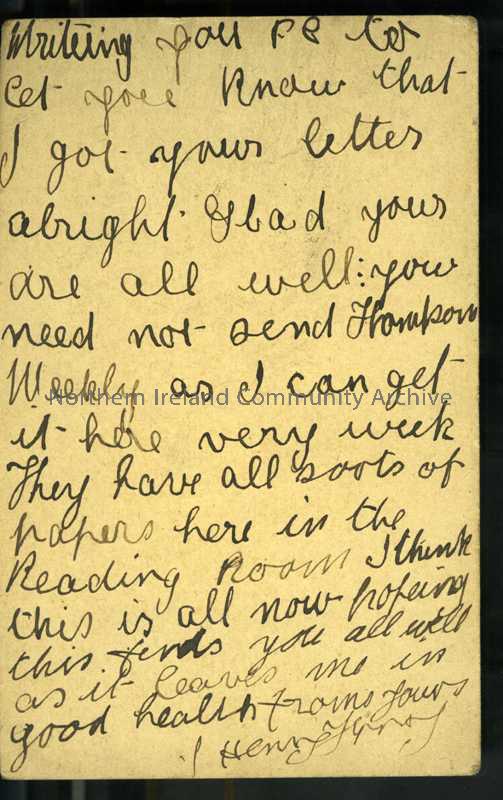 Writeing you PC to
let you know that
I got yours letter
alright. Glad yous
are all well: you
need not send Thompson
Weekly as I can get
Northern Ireland Community Archive
it here very week
They have all soots of
papers here in the
Reading Room I think
this is all now hopeing
this finds you all well
as it leaves me in
good health from yours
Henry